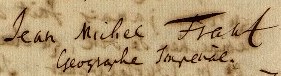 Jean Michel Franz
Geographe Imperial.